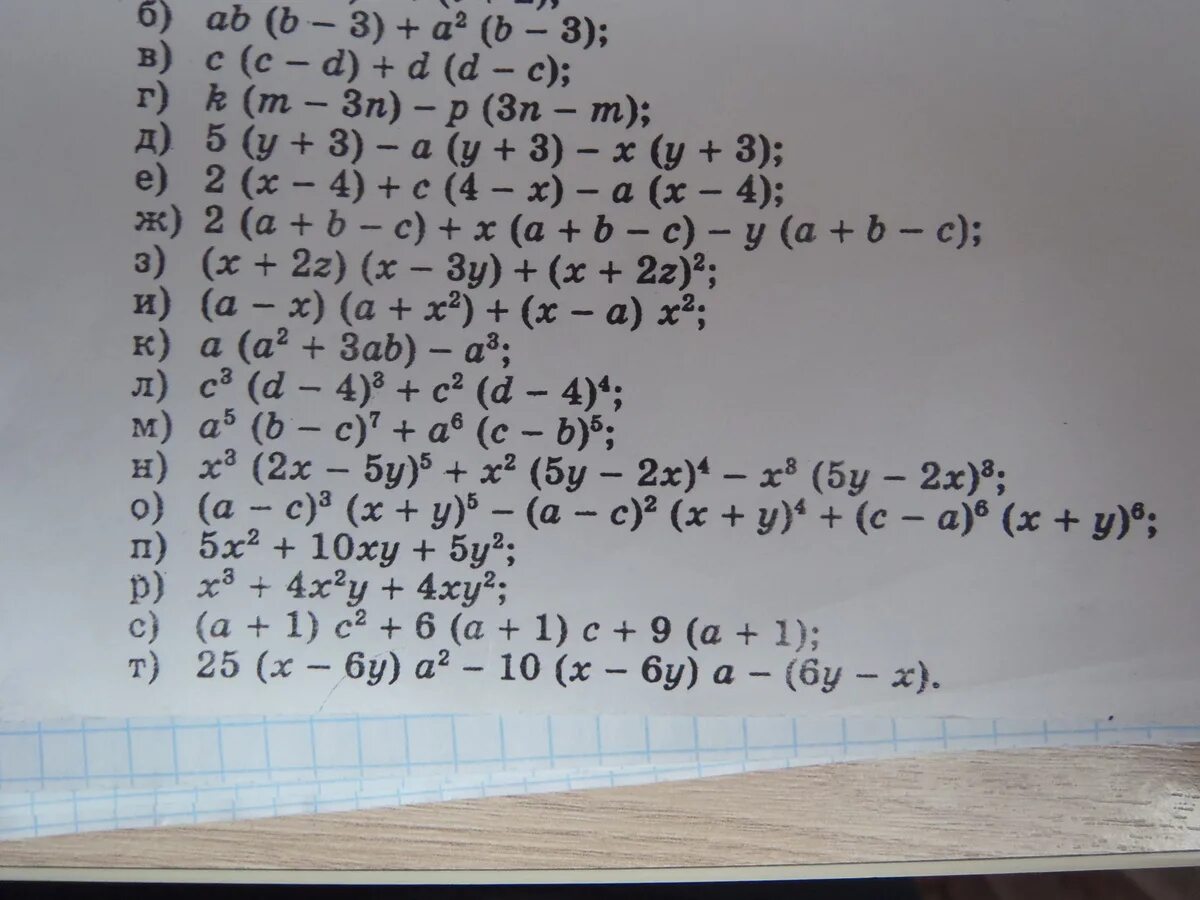 б) ab (b − 3) + a² (b − 3);
в) c (c − d) + d (d − c);
г) k (m − 3n) − p (3n − m);
д) 5 (y + 3) − a (y + 3) − x (y + 3);
е) 2 (x − 4) + c (4 − x) − a (x − 4);
ж) 2 (a + b − c) + x (a + b − c) − y (a + b − c);
з) (x + 2z) (x − 3y) + (x + 2z)²;
и) (a − x) (a + x²) + (x − a) x²;
к) a (a² + 3ab) − a³;
л) c³ (d − 4)³ + c² (d − 4)⁴;
м) a⁵ (b − c)⁷ + a⁶ (c − b)⁵;
н) x³ (2x − 5y)⁵ + x² (5y − 2x)⁴ − x³ (5y − 2x)³;
о) (a − c)³ (x + y)⁵ − (a − c)² (x + y)⁴ + (c − a)⁶ (x + y)⁶;
п) 5x² + 10xy + 5y²;
р) x³ + 4x²y + 4xy²;
с) (a + 1) c² + 6 (a + 1) c + 9 (a + 1);
т) 25 (x − 6y) a² − 10 (x − 6y) a − (6y − x).